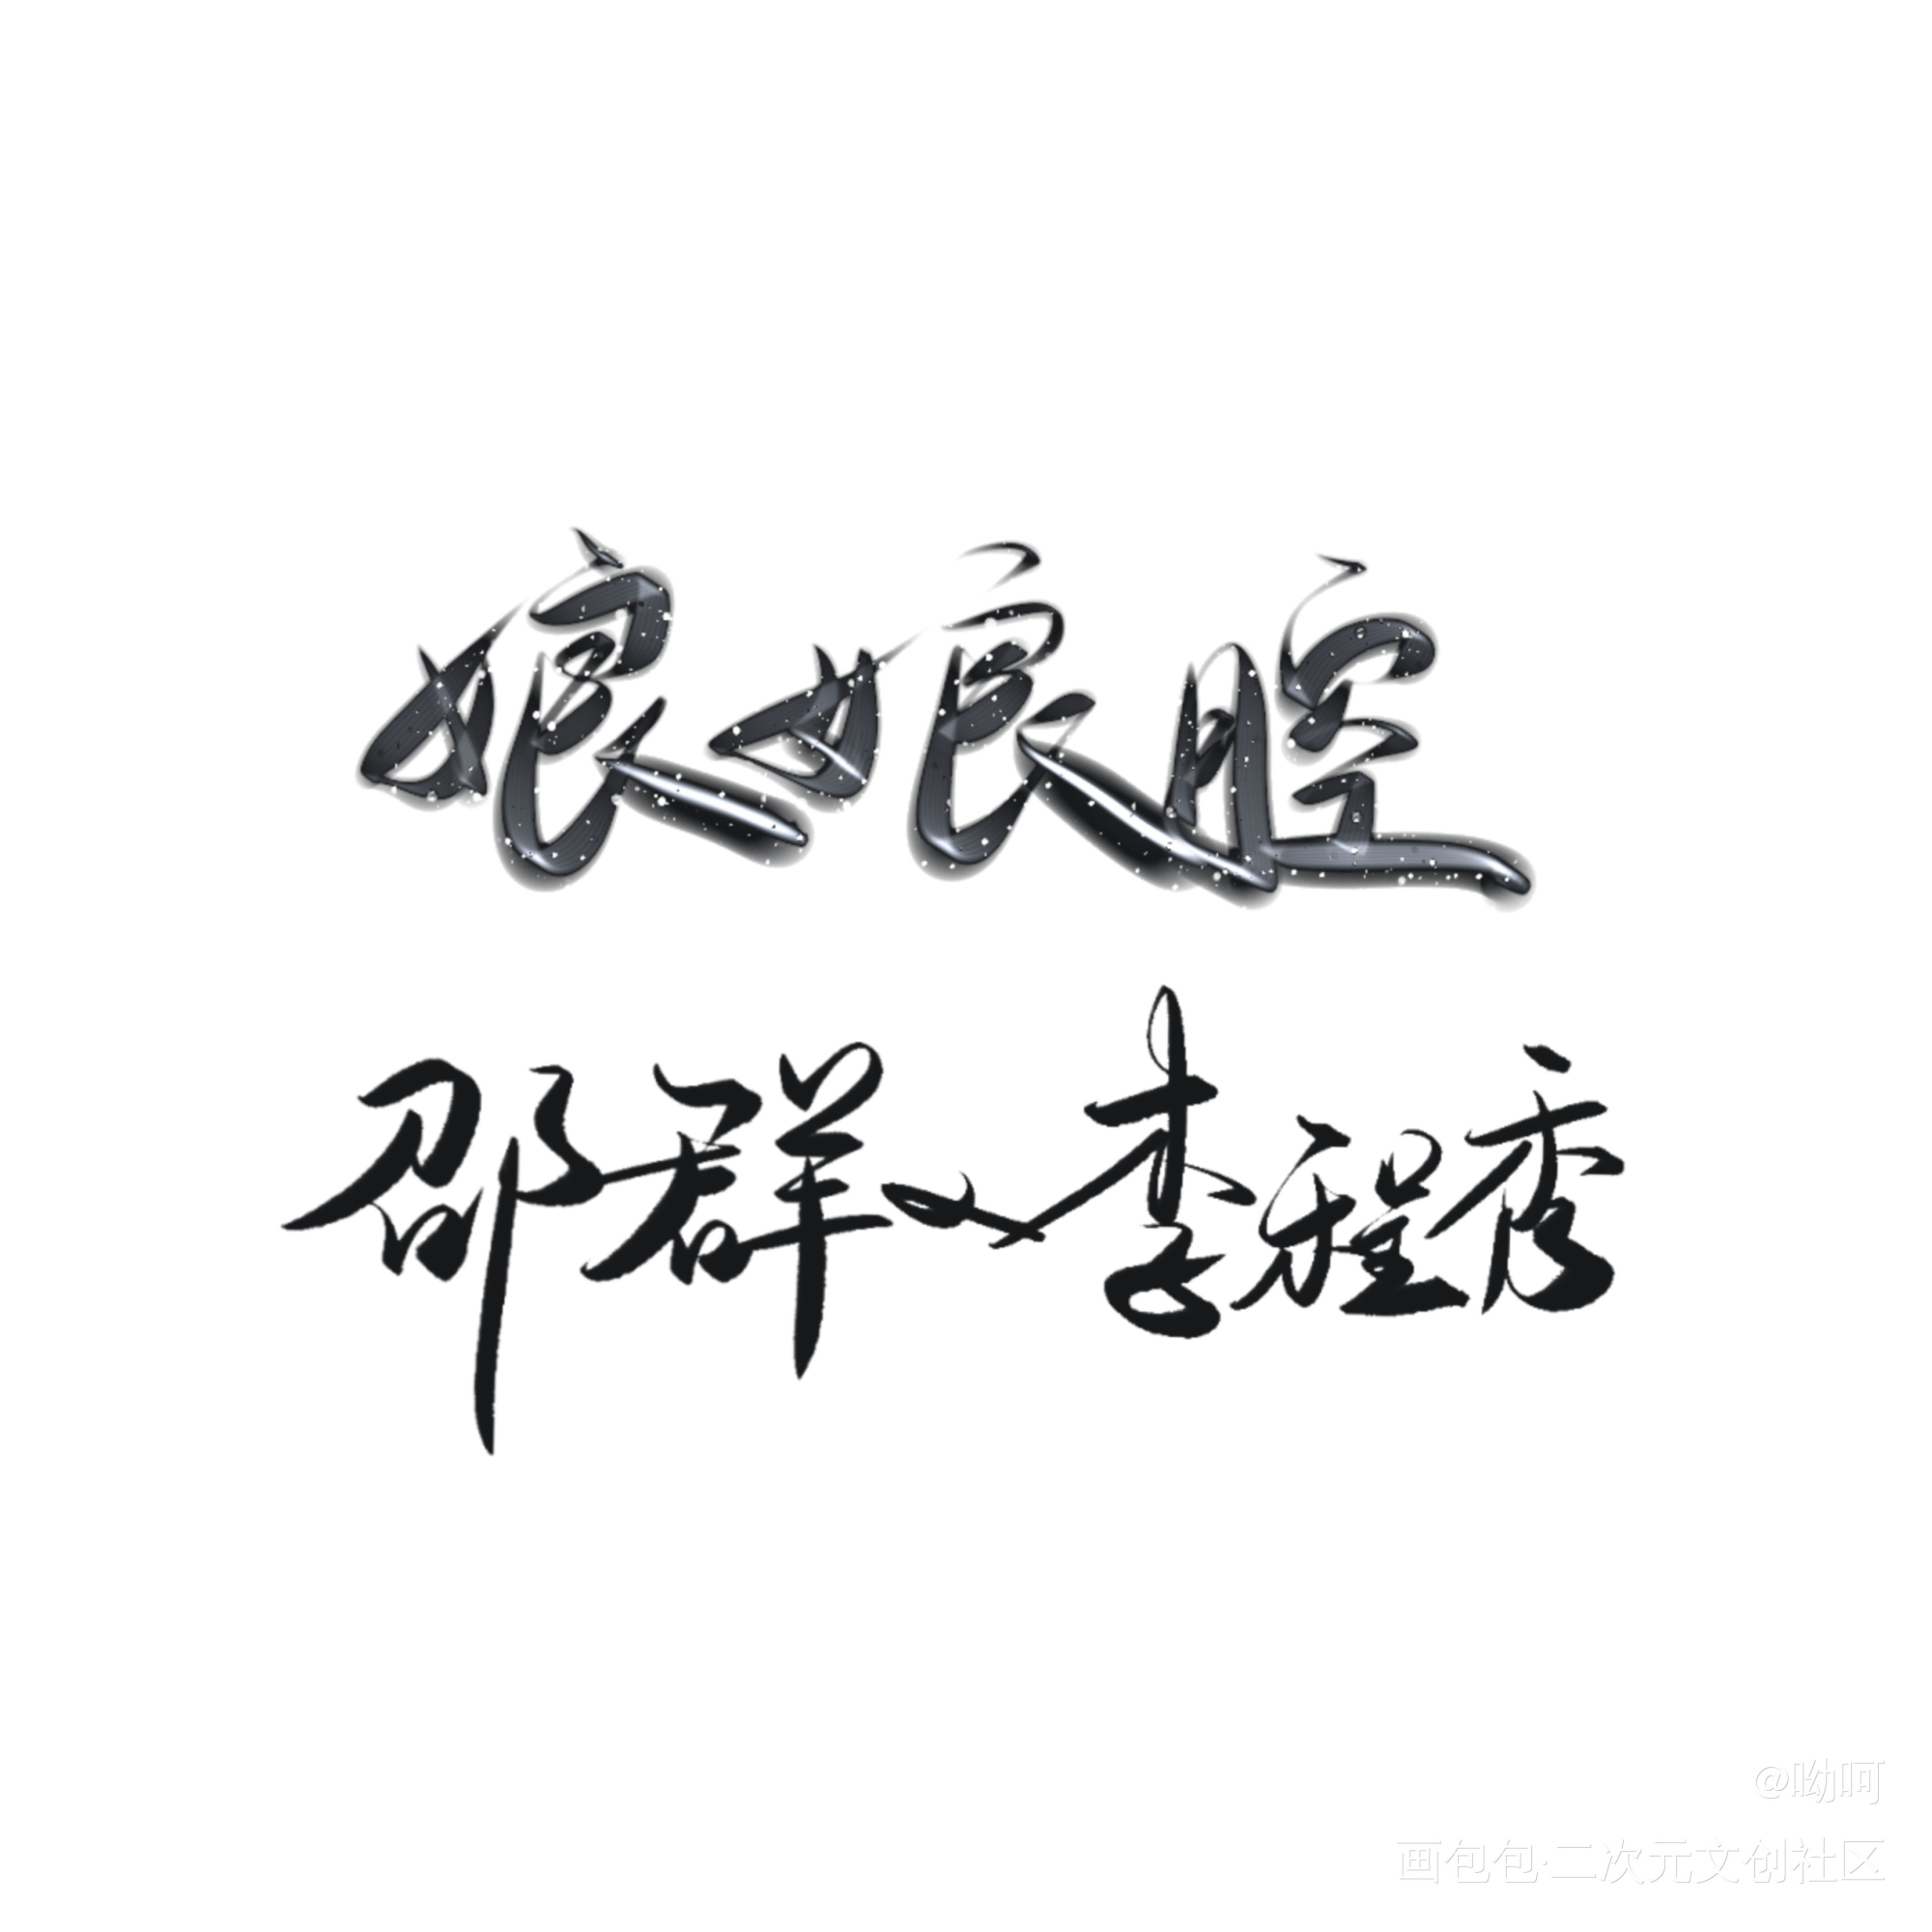 娘娘腔
邵群×李程秀
@呦呵
画包包·二次元文创社区